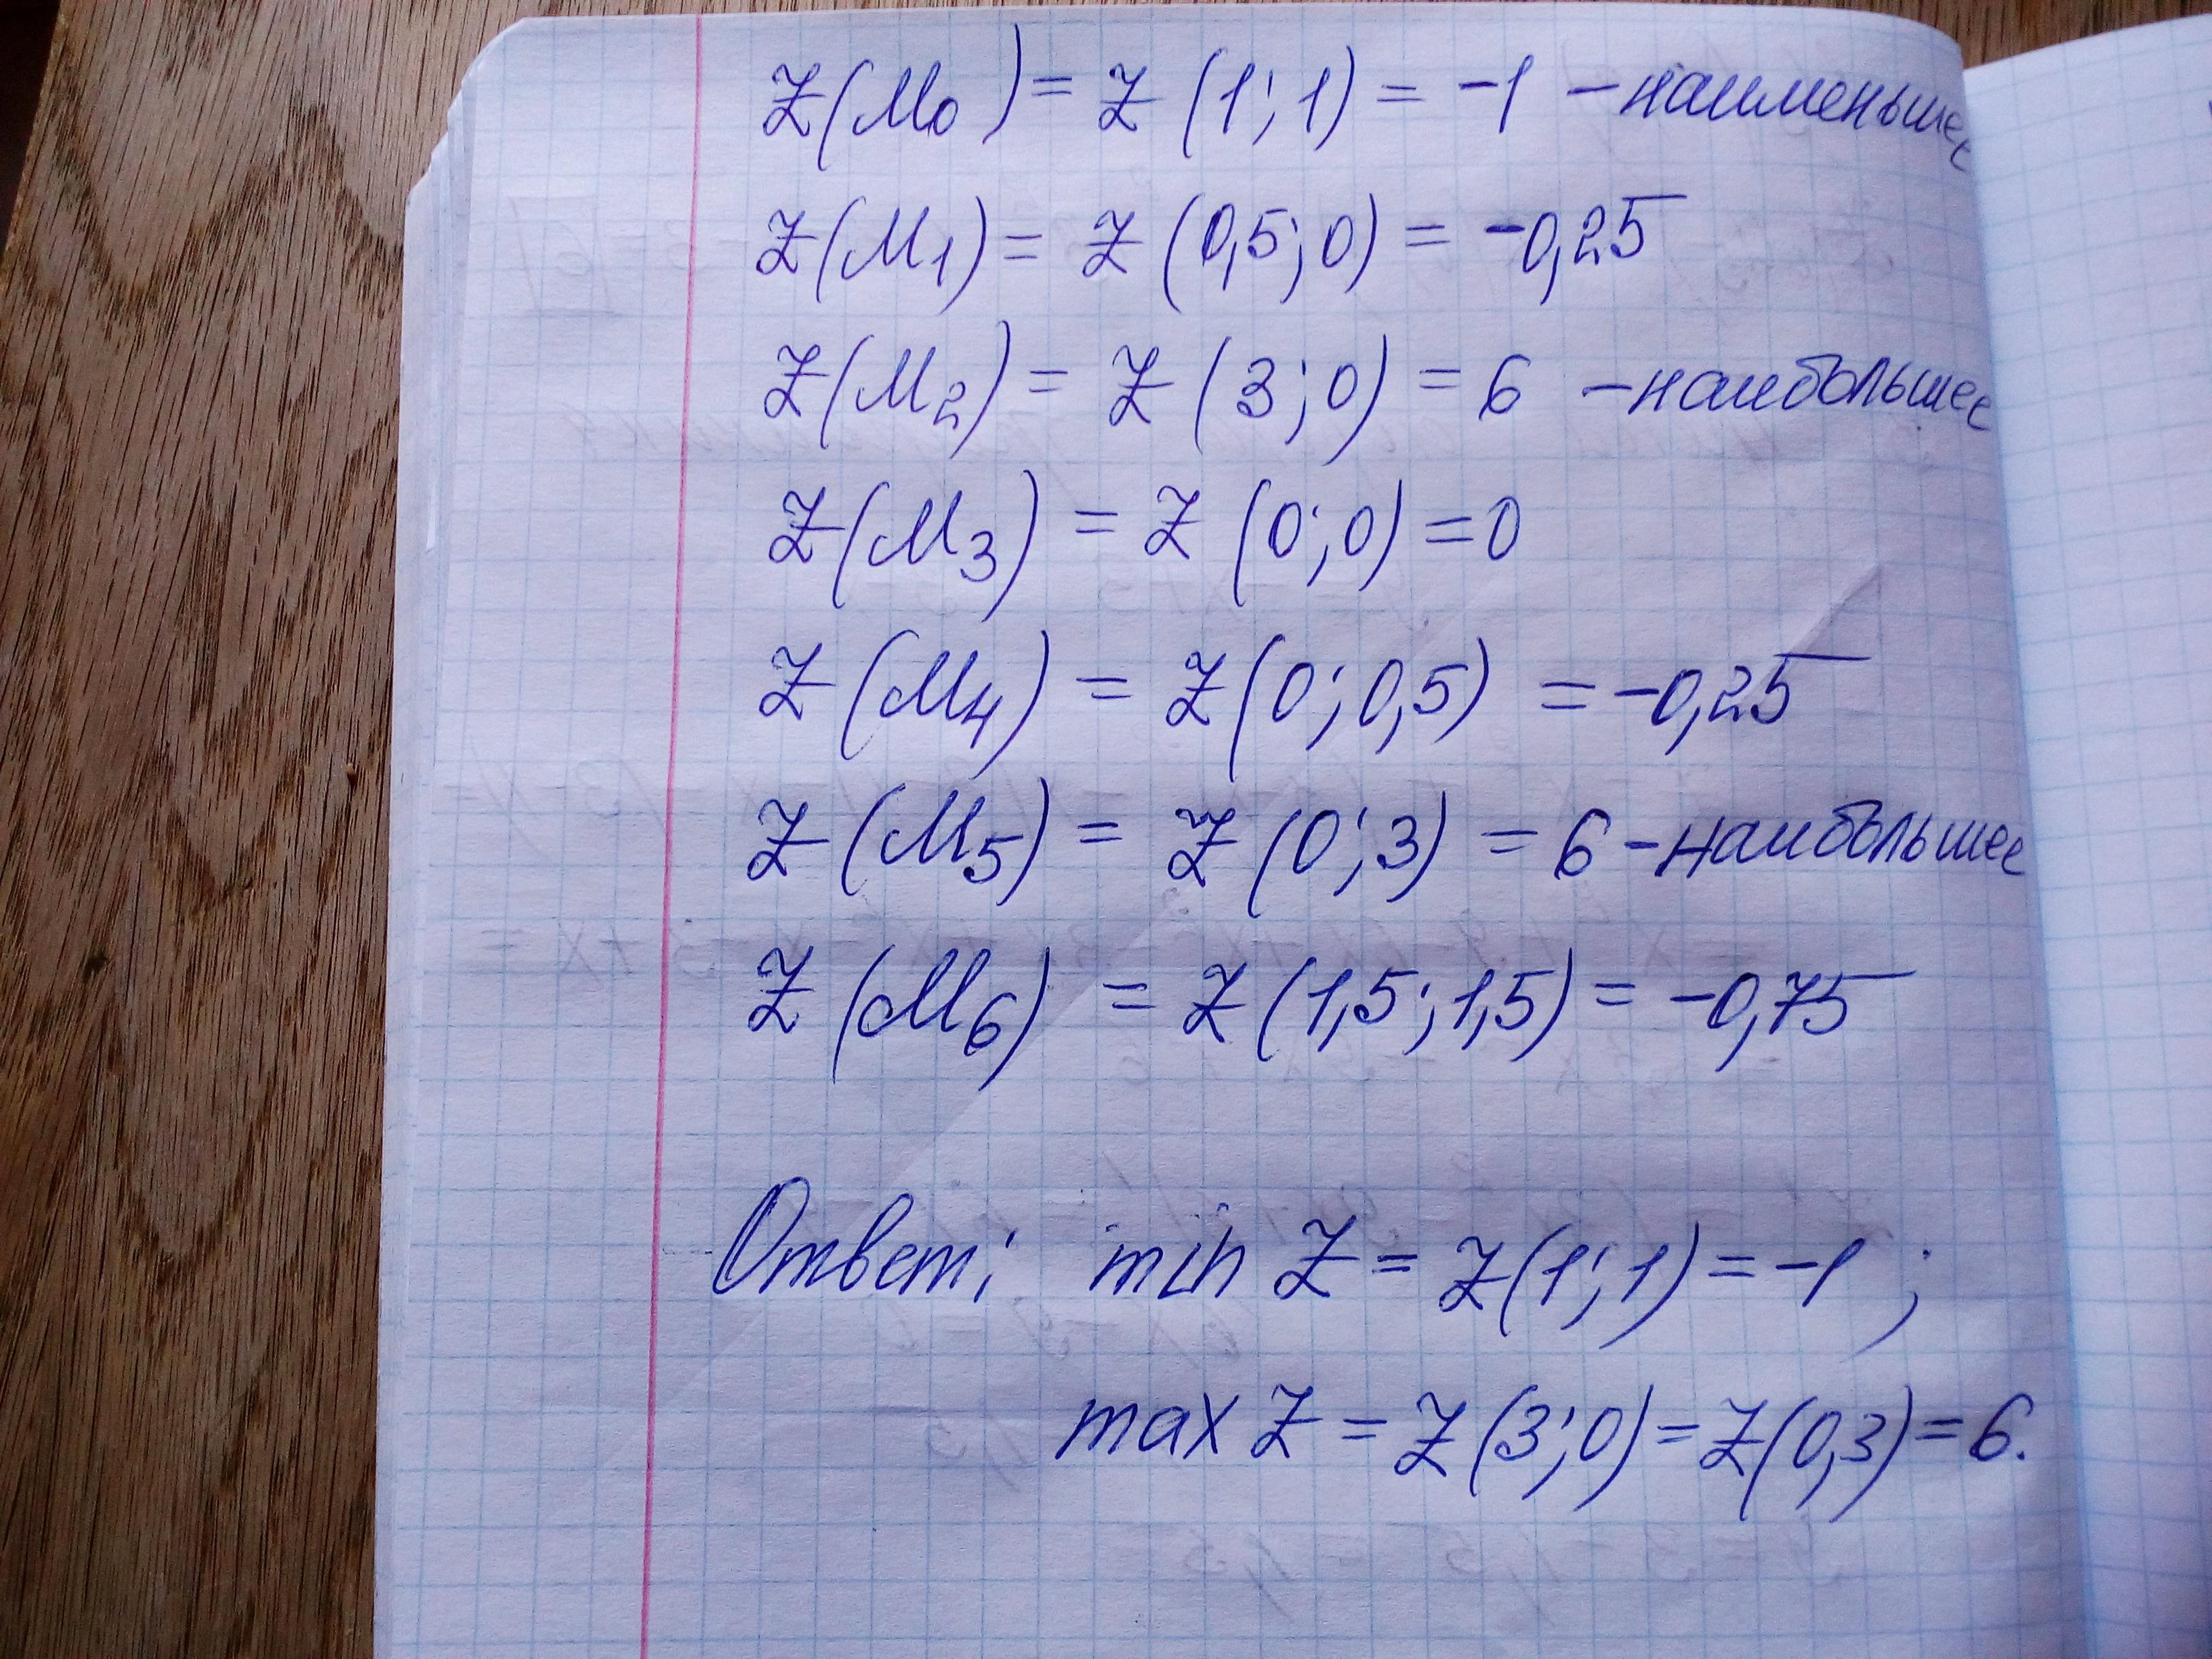 Z(M₀) = Z(1; 1) = -1 - наименьшее
Z(M₁) = Z(0,5; 0) = -0,25
Z(M₂) = Z(3; 0) = 6 - наибольшее
Z(M₃) = Z(0; 0) = 0
Z(M₄) = Z(0; 0,5) = -0,25
Z(M₅) = Z(0; 3) = 6 - наибольшее
Z(M₆) = Z(1,5; 1,5) = -0,75
Ответ: min Z = Z(1; 1) = -1 ;
max Z = Z(3; 0) = Z(0,3) = 6.